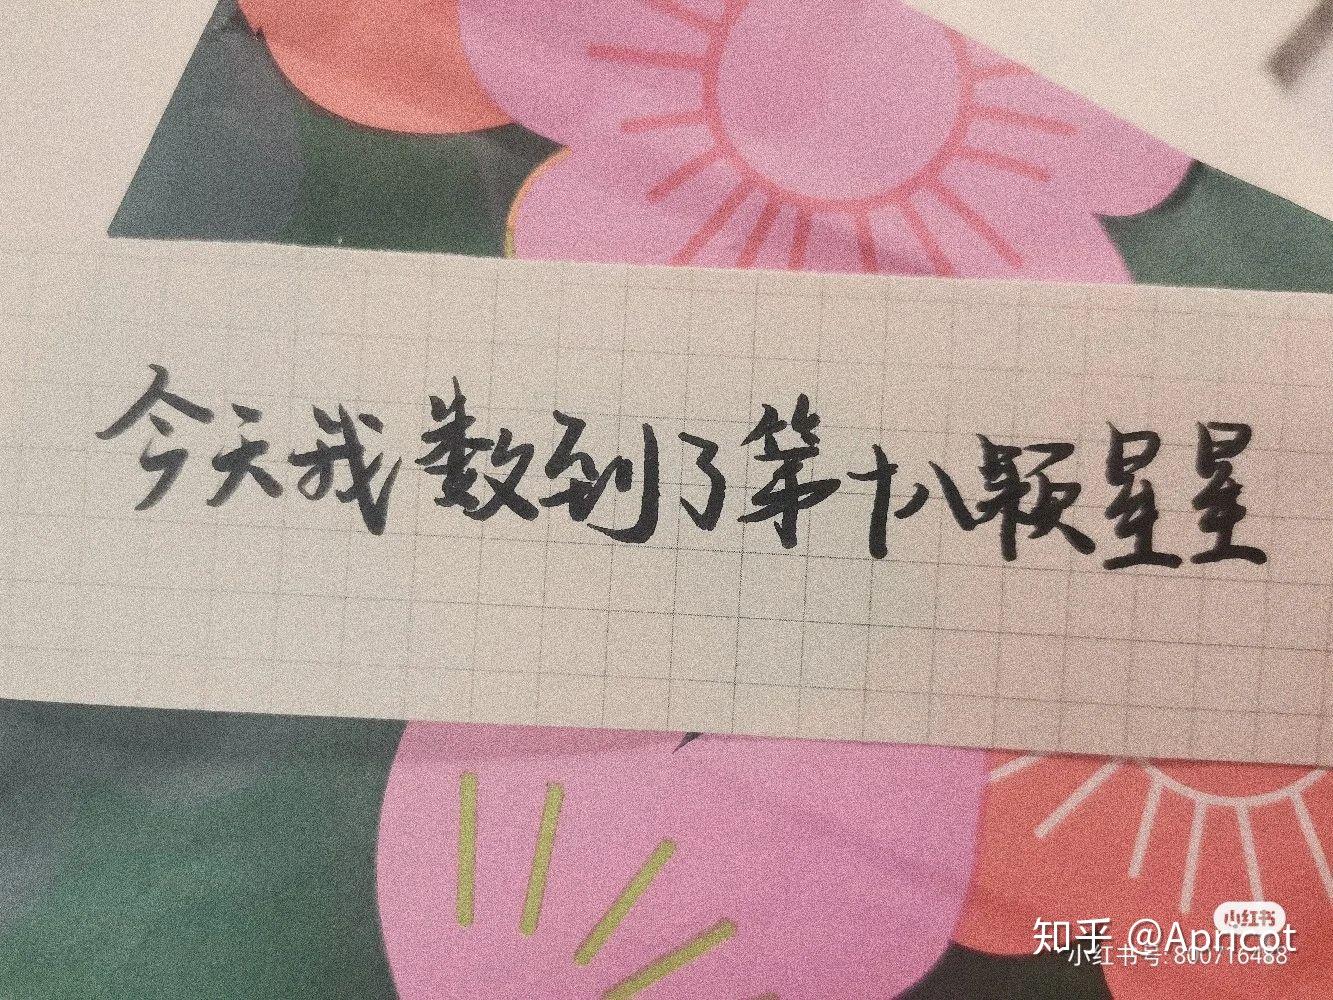 今天我数到了第十八颗星星
小红书
知乎 @Apricot
小红书号: 800716488